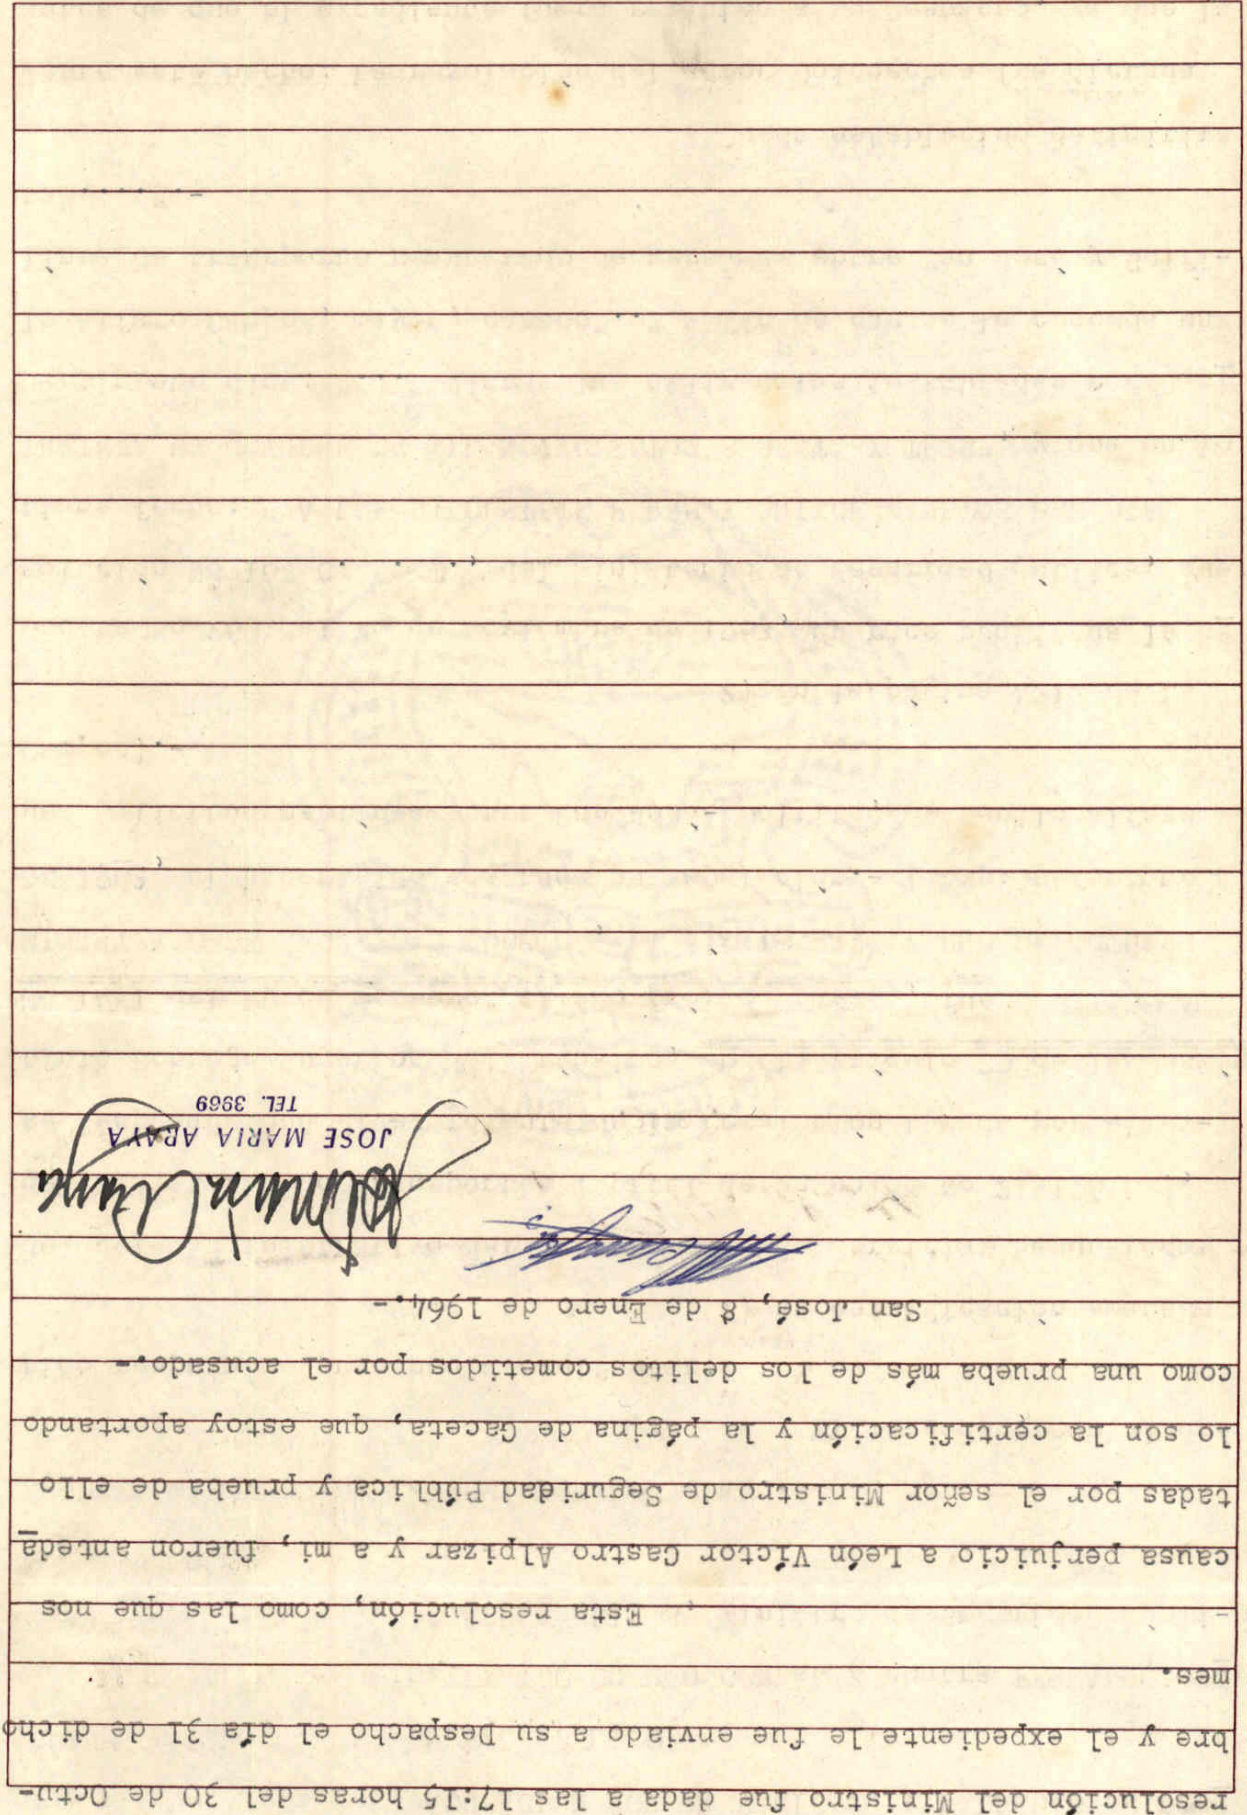 resolución del Ministro fue dada a las 17:15 horas del 30 de Octu-
bre y el expediente le fue enviado a su Despacho el día 31 de dicho
mes.
Esta resolución, como las que nos
causa perjuicio a León Víctor Castro Alpizar y a mi, fueron anteda
tadas por el señor Ministro de Seguridad Pública y prueba de ello
lo son la certificación y la página de Gaceta, que estoy aportando
como una prueba más de los delitos cometidos por el acusado.-
San José, 8 de Enero de 1964.-
José María Araya
JOSE MARIA ARAYA
TEL. 3969